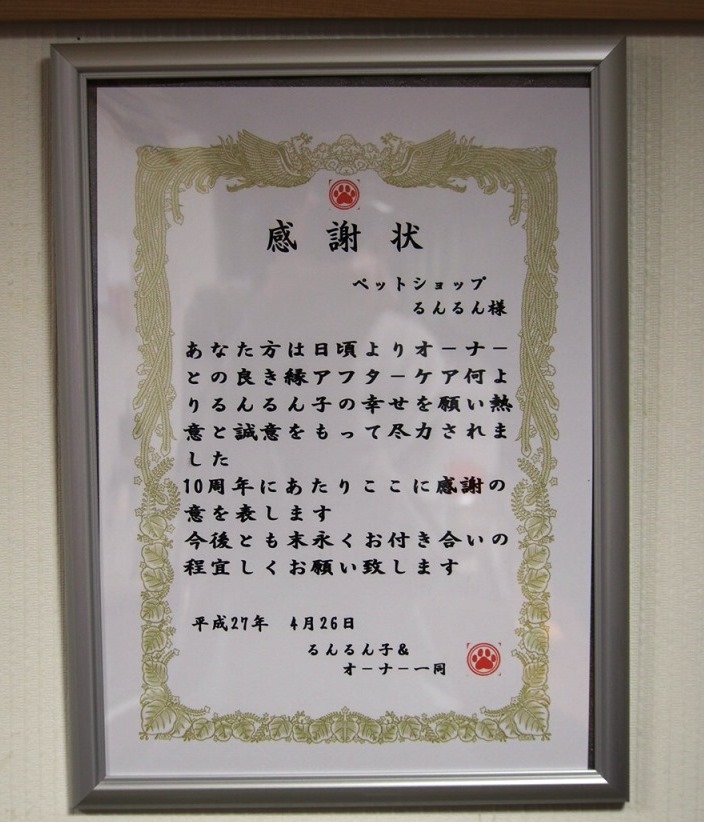 感謝状
ペットショップ
るんるん様
あなた方は日頃よりオーナー
との良き縁アフターケア何よ
りるんるん子の幸せを願い熱
意と誠意をもって尽力されま
した
10周年にあたりここに感謝の
意を表します
今後とも末永くお付き合いの
程宜しくお願い致します
平成27年 4月26日
るんるん子&
オーナー一同